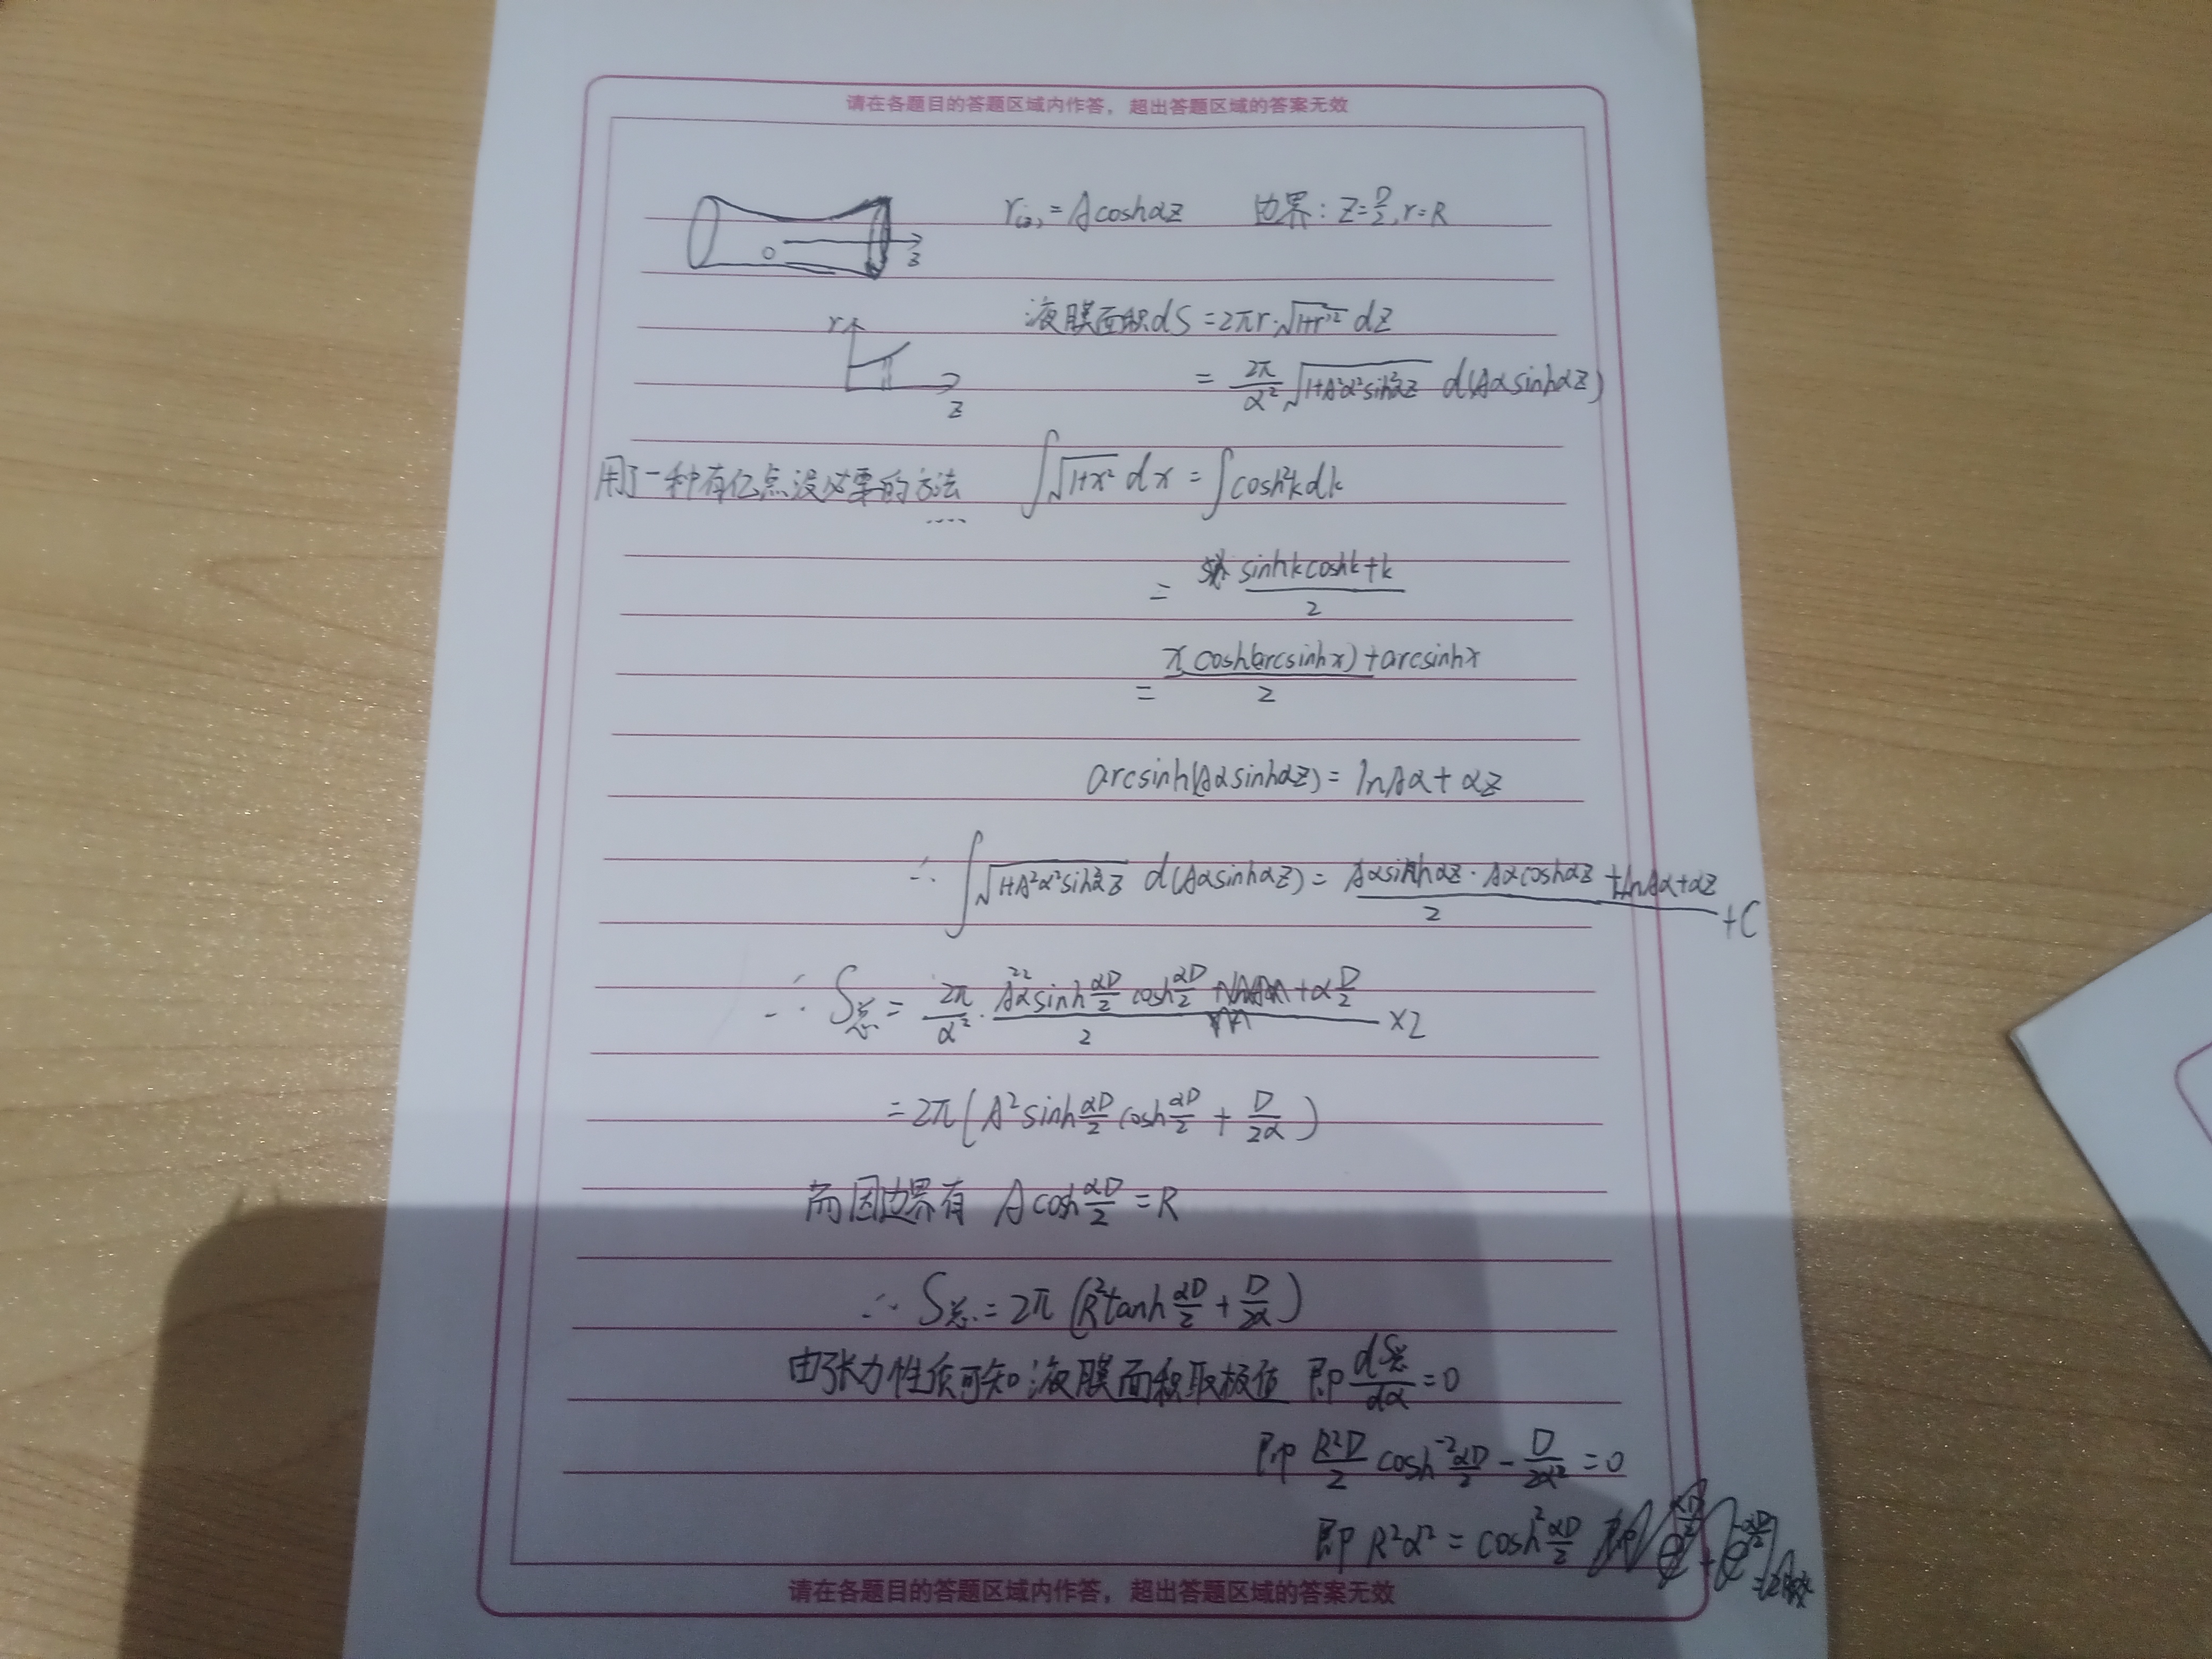 请在各题目的答题区域内作答，超出答题区域的答案无效
r(z) = A cosh αz 边界: z = D/2, r = R
O z
液膜面积 dS = 2πr·√(1+r'²) dz
r z
= 2π/α² √(1+A²α²sinh²αz) d(Aα sinh αz)
用了一种有亿点没必要的方法 ∫√(1+x²) dx = ∫cosh²k dk
....
= (sinh k cosh k + k)/2
= (x cosh(arcsinh x) + arcsinh x)/2
arcsinh(Aα sinh αz) = ln Aα + αz
∴ ∫√(1+A²α²sinh²αz) d(Aα sinh αz) = (Aα sinh αz · Aα cosh αz + ln Aα + αz)/2 + C
∴ S总 = 2π/α² · (A²α² sinh αD/2 cosh αD/2 + α D/2)/2 × 2
= 2π(A² sinh αD/2 cosh αD/2 + D/2α)
而因边界有 A cosh αD/2 = R
∴ S总 = 2π(R² tanh αD/2 + D/2α)
由张力性质可知液膜面积取极值 即 dS总/dα = 0
即 R²D/2 cosh⁻² αD/2 − D/2α² = 0
即 R²α² = cosh² αD/2
请在各题目的答题区域内作答，超出答题区域的答案无效